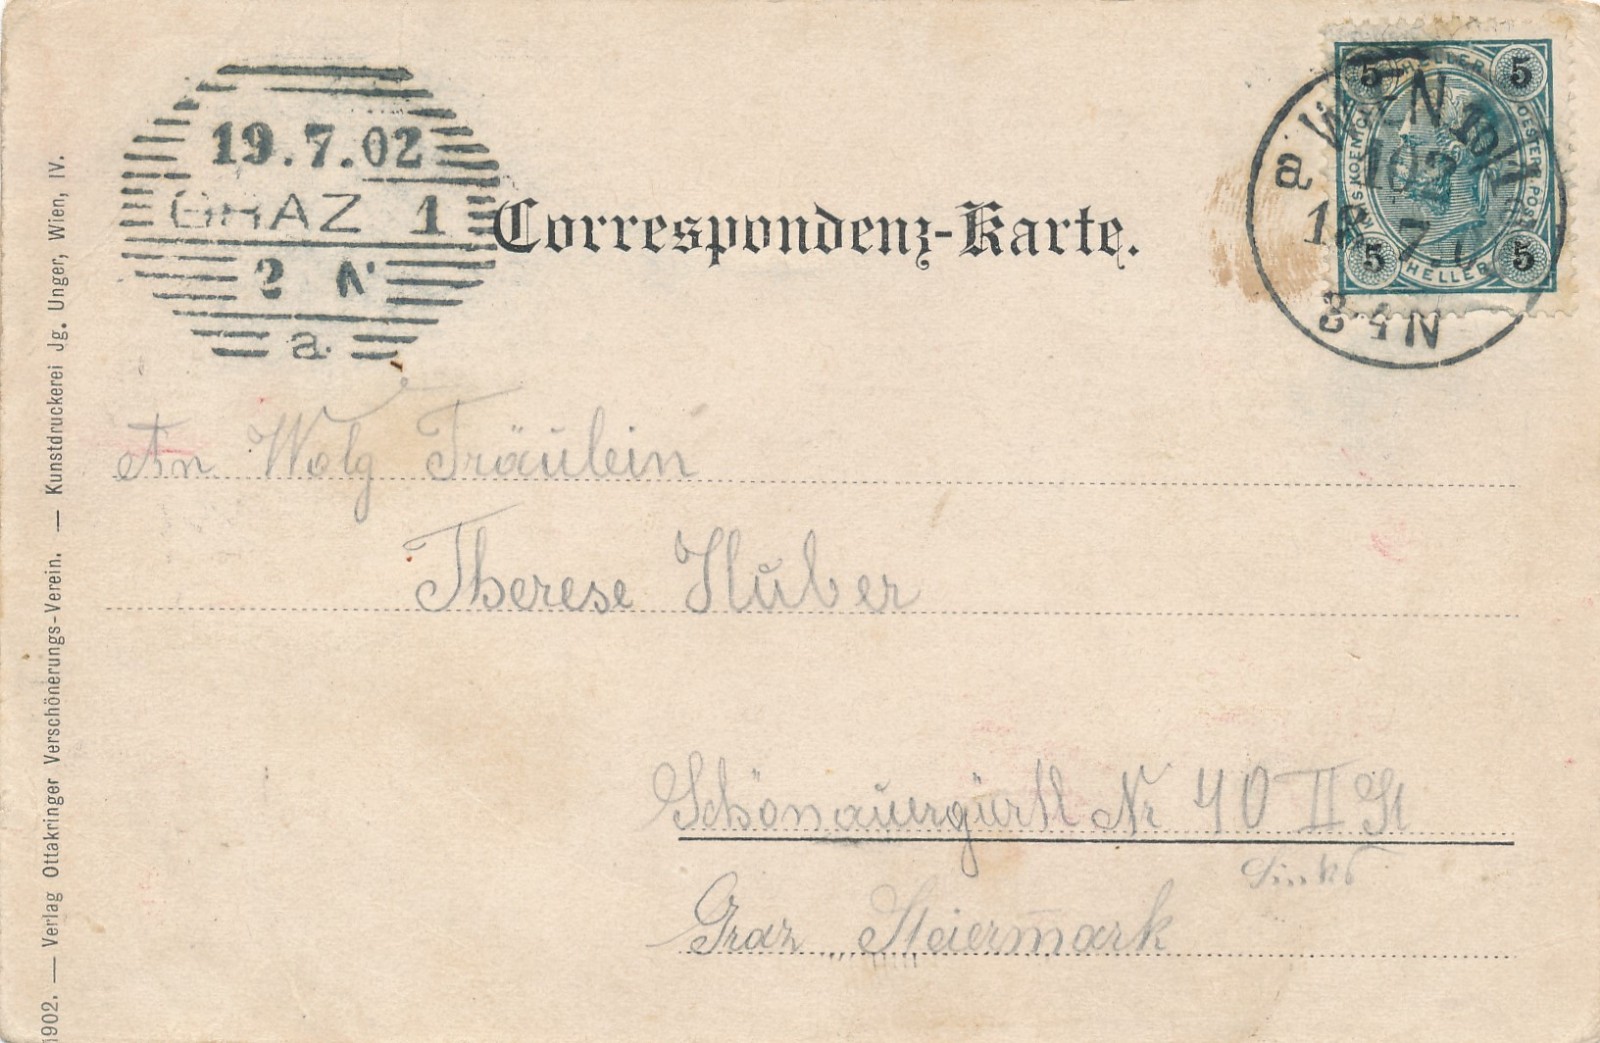 19.7.02
GRAZ 1
2 N
a
Correspondenz-Karte.
5 HELLER 5
a WIEN 10/1
102
18 7.0
8 4 N
5 HELLER 5
An Wolg Fräulein
Therese Huber
Schönauergürtl Nr 40 II St
Links
Graz Steiermark
1902. — Verlag Ottakringer Verschönerungs-Verein. — Kunstdruckerei Jg. Unger, Wien, IV.